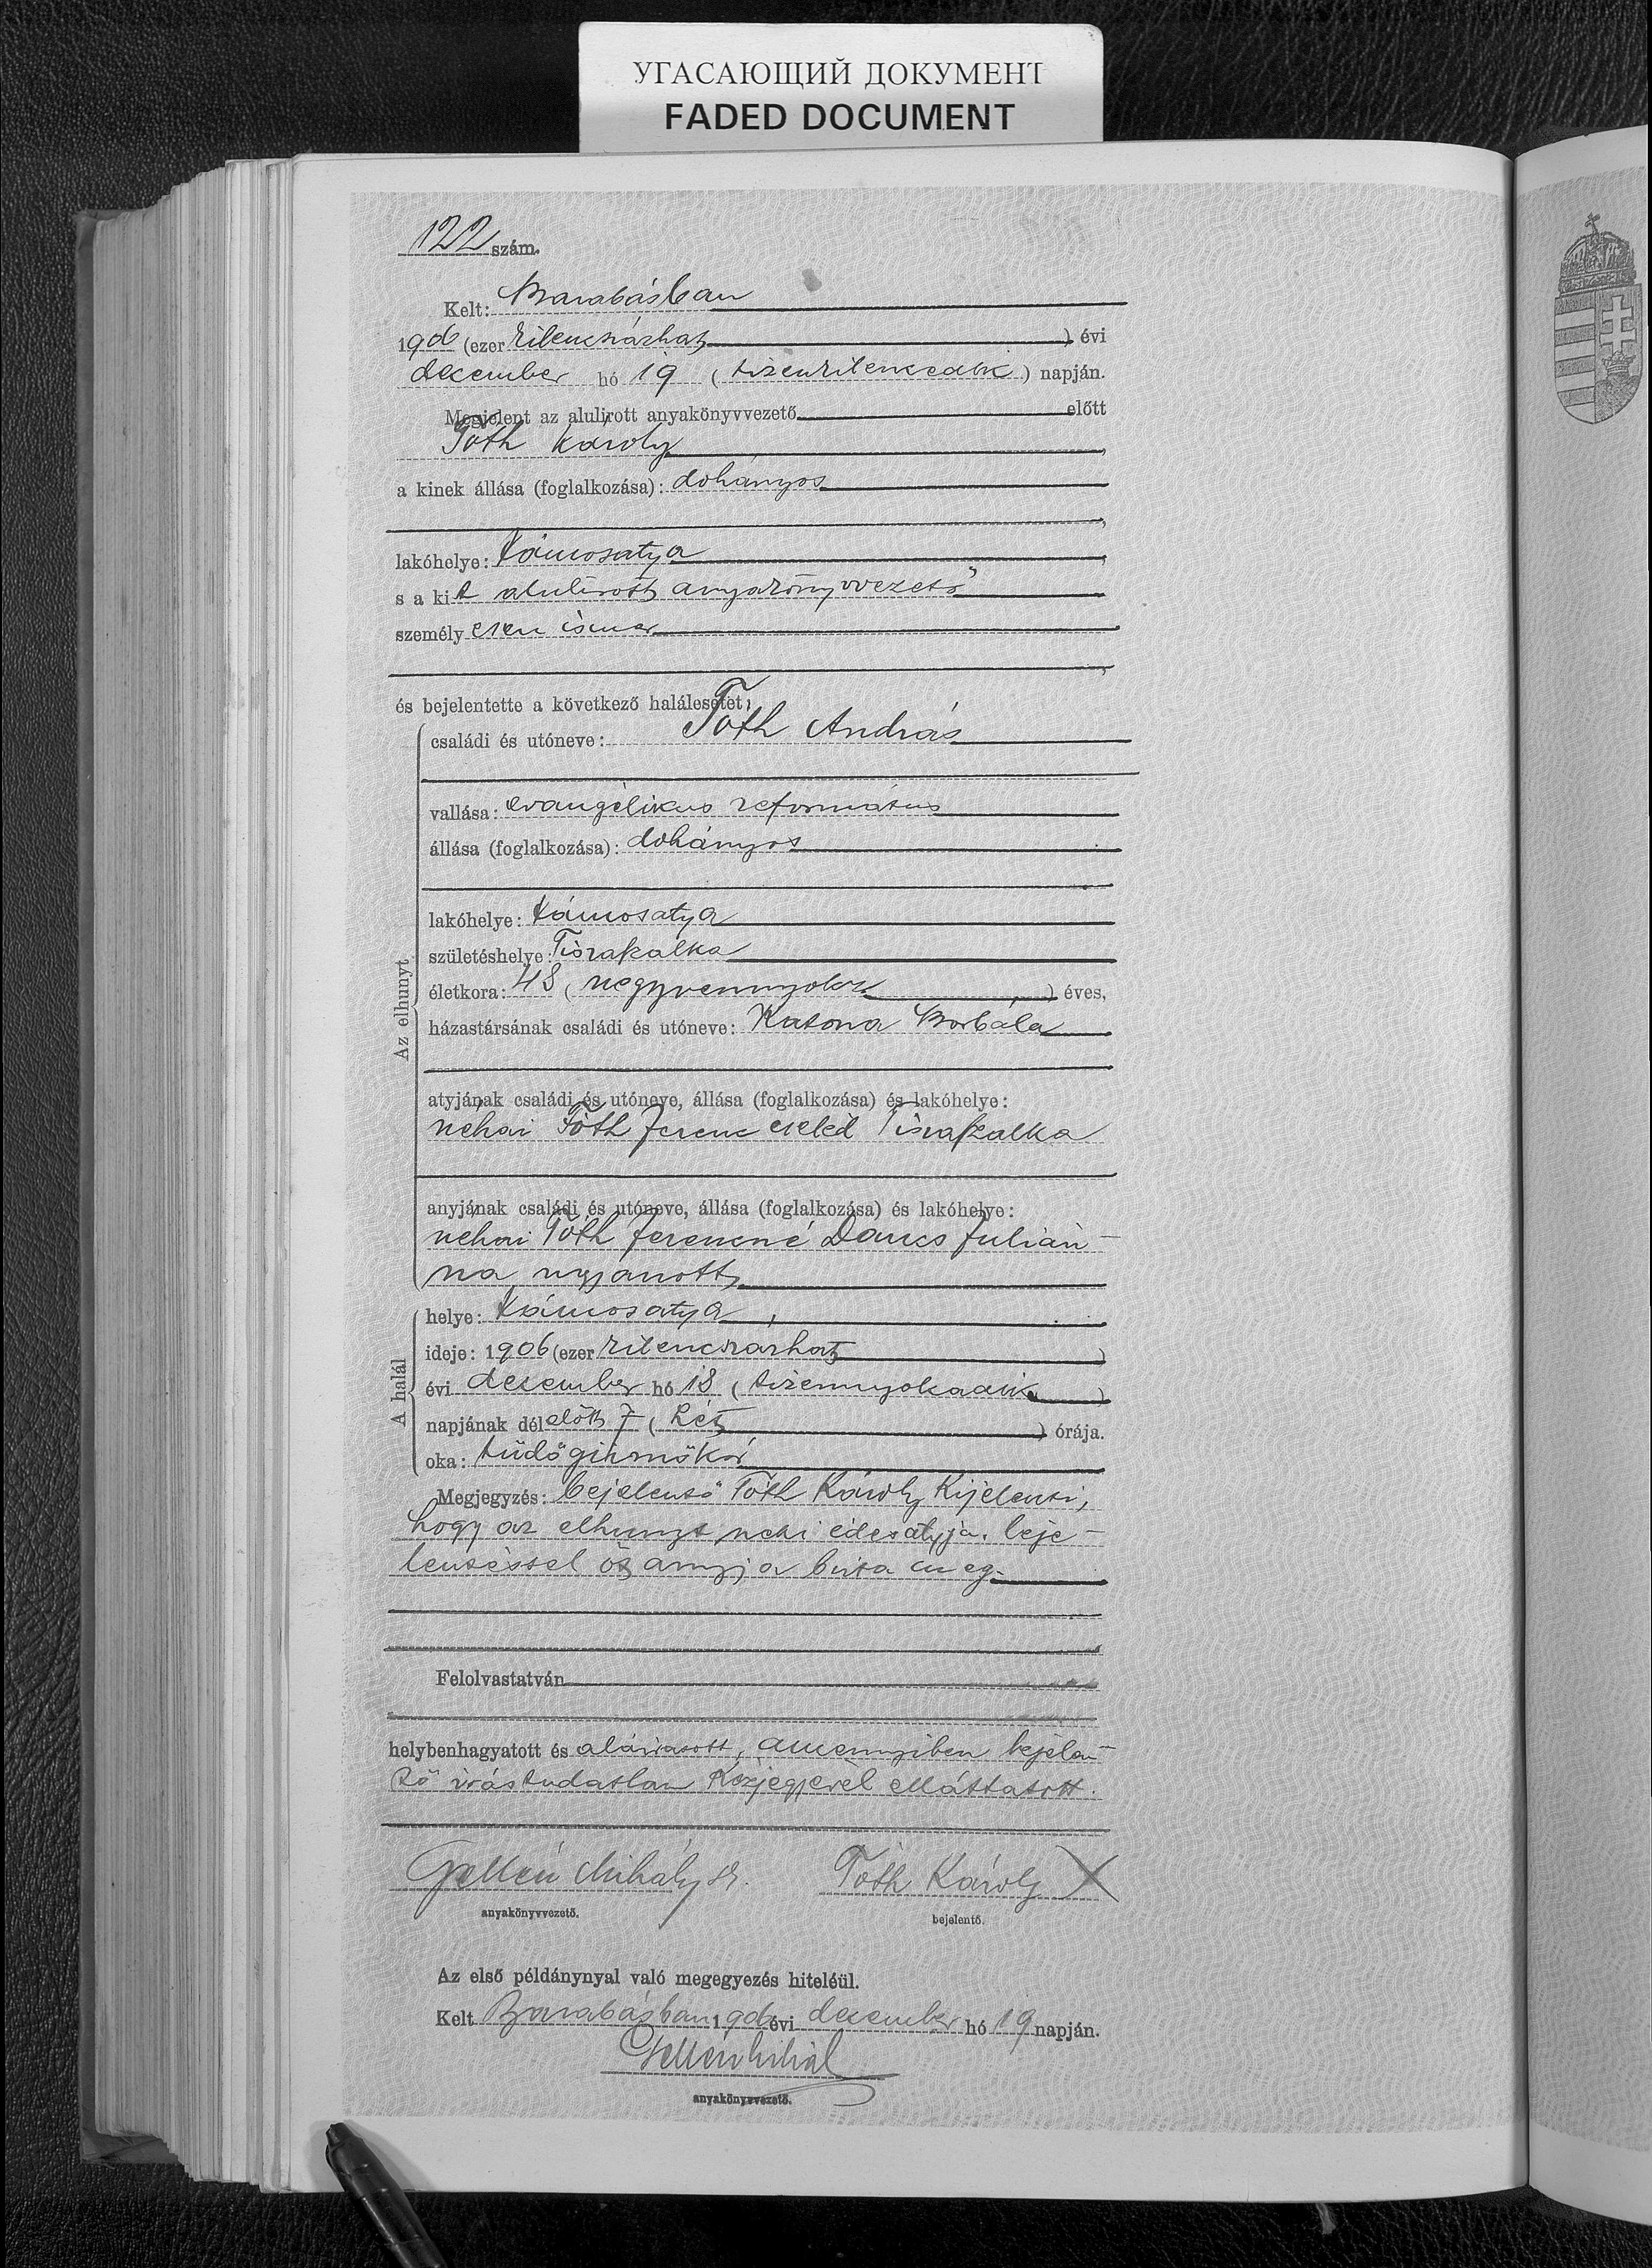 УГАСАЮЩИЙ ДОКУМЕНТ
FADED DOCUMENT
122 szám.
Kelt: Barabásban
1906 (ezer kilencszázhat) évi
december hó 19 (tizenkilencedik) napján.
Megjelent az alulirott anyakönyvvezető előtt
Tóth Károly,
a kinek állása (foglalkozása): dohányos
lakóhelye: Vámosatya,
s a kit alulirott anyakönyvvezető
személyesen ismer,
és bejelentette a következő halálesetet:
Az elhunyt
családi és utóneve: Tóth András
vallása: evangélikus református
állása (foglalkozása): dohányos
lakóhelye: Vámosatya
születéshelye: Tiszaszalka
életkora: 48 (negyvennyolcz) éves,
házastársának családi és utóneve: Katona Borbála
atyjának családi és utóneve, állása (foglalkozása) és lakóhelye:
néhai Tóth Ferenc cseléd Tiszaszalka
anyjának családi és utóneve, állása (foglalkozása) és lakóhelye:
néhai Tóth Ferencné Dancs Julián-
na ugyanott
A halál
helye: Vámosatya,
ideje: 1906 (ezer kilencszázhat)
évi december hó 18 (tizennyolcadik)
napjának dél előtt 7 (hét) órája.
oka: tüdőgümőkór
Megjegyzés: bejelentő Tóth Károly kijelenti,
hogy az elhunyt neki édesatyja. beje-
lentéssel őt anyja bizta meg.
Felolvastatván
helybenhagyatott és aláiratott, amennyiben bejelen-
tő irástudatlan kézjegyével elláttatott.
Gellén Mihály sk. Tóth Károly X
anyakönyvvezető. bejelentő.
Az első példánynyal való megegyezés hiteléül.
Kelt Barabásban 1906 évi december hó 19 napján.
Gellén Mihál
anyakönyvvezető.